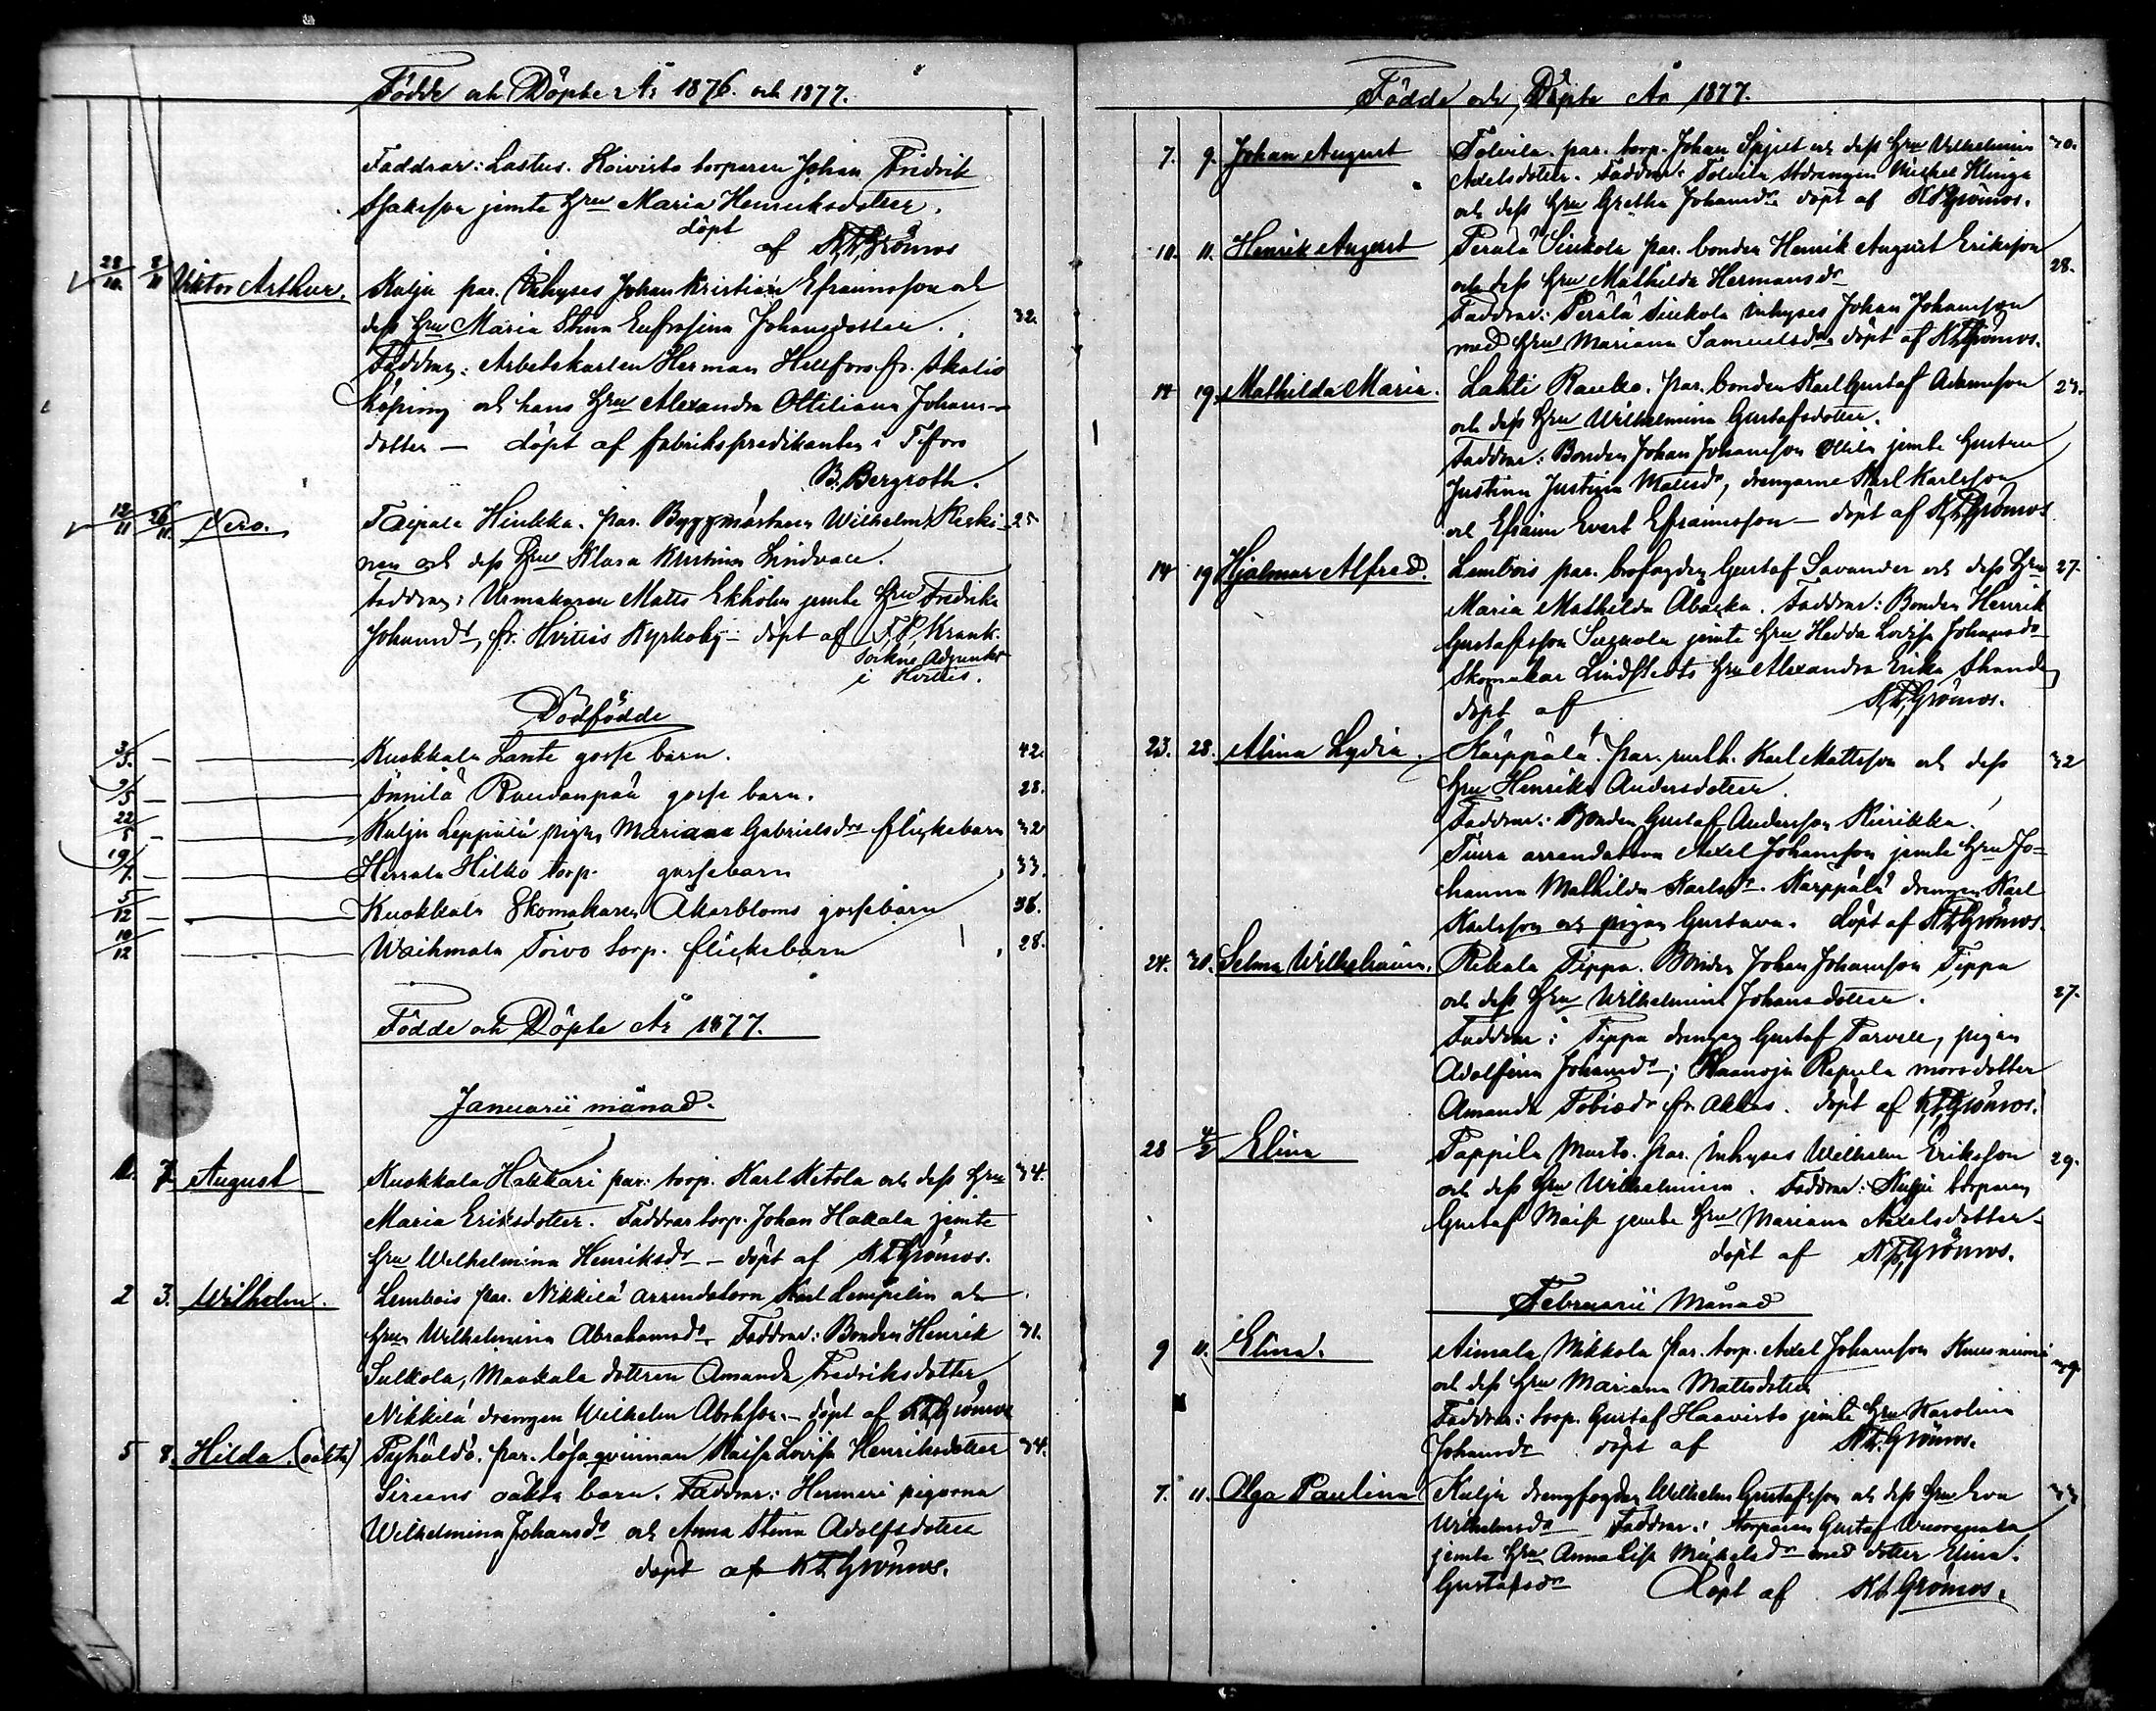 Födde och Döpte År 1876 och 1877.
Faddrar: Lastus. Koivisto torparen Johan Fredrik
Isaksson jemte Hru Maria Henriksdotter.
döpt
af K.F. Grönros
28/10. 8/11 Viktor Arthur. Kulju par. Inhyses Johan Kristian Efraimsson och
dess Hru Maria Stina Eufrosina Johansdotter. 32.
Faddrar: Arbetskarlen Herman Hellfors fr.
köping och hans Hru Alexandra Ottiliana Johans-
dotter — döpt af fabrikspredikanten i Tfors
B. Bergroth.
12/11 26/11 Nero. Taipale Hinkka. par. Byggmästaren Wilhelm Keski- 25
nen och dess Hru Klara Kristina Lindvall.
Faddrar: Urmakaren Matts Ekholm jemte Hru Fredrika
Johansdr, fr. Hvittis Kyrkoby — döpt af F.F. Krank.
Sockne Adjunkt
i Hvittis.
Dödfödde
3/3. — — Kuokkala Lante gosse barn. 42.
9/5 — — Innilä Raudanpää gosse barn. 28.
22/5 — — Kulju Leppälä pigan Mariana Gabrielsdr flickebarn 32
19/7 — — Herrala Hilko torp. gossebarn 33.
5/12 — — Kuokkala Skomakaren Åkerbloms gossebarn 38.
10/12 — Waihmala Toivo torp. flickebarn 28.
Födde och Döpte År 1877.
Januarii månad.
1. 7. August Kuokkala Hakkari par. torp. Karl Ketola och dess Hru 34.
Maria Eriksdotter. Faddrar torp. Johan Hakala jemte
Hru Wilhelmina Henriksdr — döpt af K.F. Grönros.
2 3. Wilhelm. Lembois par. Nikkilä arrendatorn Karl Lempelin och
Hru Wilhelmina Abrahamsdr. Faddrar: Bonden Henrik 31.
Sulkola, Maakala dottren Amanda Fredriksdotter
Nikkilä drengen Wilhelm Abrhsson. — döpt af K.F. Grönros
5 8. Hilda. (oäkta) par. lösa qvinnan Maija Lovisa Henriksdotter 34.
Sirens oäkta barn. Faddrar: Hermeri pigorna
Wilhelmina Johansdr och Anna Stina Adolfsdotter
döpt af K.F. Grönros.
Födde och Döpte År 1877.
7. 9. Johan August Tolvila. par. torp. Johan Spjut och dess Hru Wilhelmina 30.
Axelsdotter. Faddrar: Tolvila Stdrangen Mickel Klinga
och dess Hru Gretha Johansdr döpt af K.F. Grönros.
10. 11. Henrik August Perälä Sirkola par. bonden Henrik August Eriksson
och dess Hru Mathilda Hermansdr 28.
Faddrar: Perälä Sirkola inhyses Johan Johansson
med Hru Mariana Samuelsdr döpt af K.F. Grönros.
14 19. Mathilda Maria. Lahti Rauko. par. bonden Karl Gustaf Adamsson 23.
och dess Hru Wilhelmina Gustafsdotter.
Faddrar: Bonden Johan Johansson Ollila jemte Hustru
Justina Justina Mattsdr, drengarne Karl Karlsson
och Efraim Evert Efraimsson — döpt af K.F. Grönros
14 19 Hjalmar Alfred. Lembois par. brofogden Gustaf Savander och dess Hru 27.
Maria Mathilda Abacka. Faddrar: Bonden Henrik
Gustafsson jemte Hru Hedda Lovisa Johansdr
Skomakar Lindstedts Hru Alexandra Erika
döpt af K.F. Grönros.
23. 28. Alina Lydia. Kärppälä. par. rusth. Karl Mattsson och dess 32
Hru Henrika Andersdotter.
Faddrar: Bonden Gustaf Andersson Kirikka.
Tiura arrendatorn Axel Johansson jemte Hru Jo-
hanna Mathilda Karlsdr. Kärppälä drengen Karl
Karlsson och pigan Gustava. döpt af K.F. Grönros.
24. 30. Selma Wilhelmina. Rikala Tippa. Bonden Johan Johansson Tippa
och dess Hru Wilhelmina Johansdotter. 27.
Faddrar: Tippa drengen Gustaf Parvell, pigan
Adolfina Johansdr; Haanoja Repula morsdotter
Amanda Tobiasdr fr. Akkas. döpt af K.F. Grönros.
28 4/2 Elina Pappila Murto. par. inhyses Wilhelm Eriksson 29.
och dess Hru Wilhelmina. Faddrar: Kulju torparen
Gustaf Maisi jemte Hru Mariana Axelsdotter.
döpt af K.F. Grönros.
Februarii Månad
9 11. Elina. Aimala Mikkola par. torp. Axel Johansson Kuusniemi 39.
och dess Hru Mariana Mattsdotter
Faddrar: torp. Gustaf Haavisto jemte Hru Karolina
Johansdr döpt af K.F. Grönros.
7. 11. Olga Paulina Kulju drengfogden Wilhelm Gustafsson och dess Hru Eva 33
Wilhelmsdr Faddrar: torparen Gustaf Wuorenpää
jemte Hru Anna Lisa Mickelsdr med dotter Elina
Gustafsdr Döpt af K.F. Grönros.